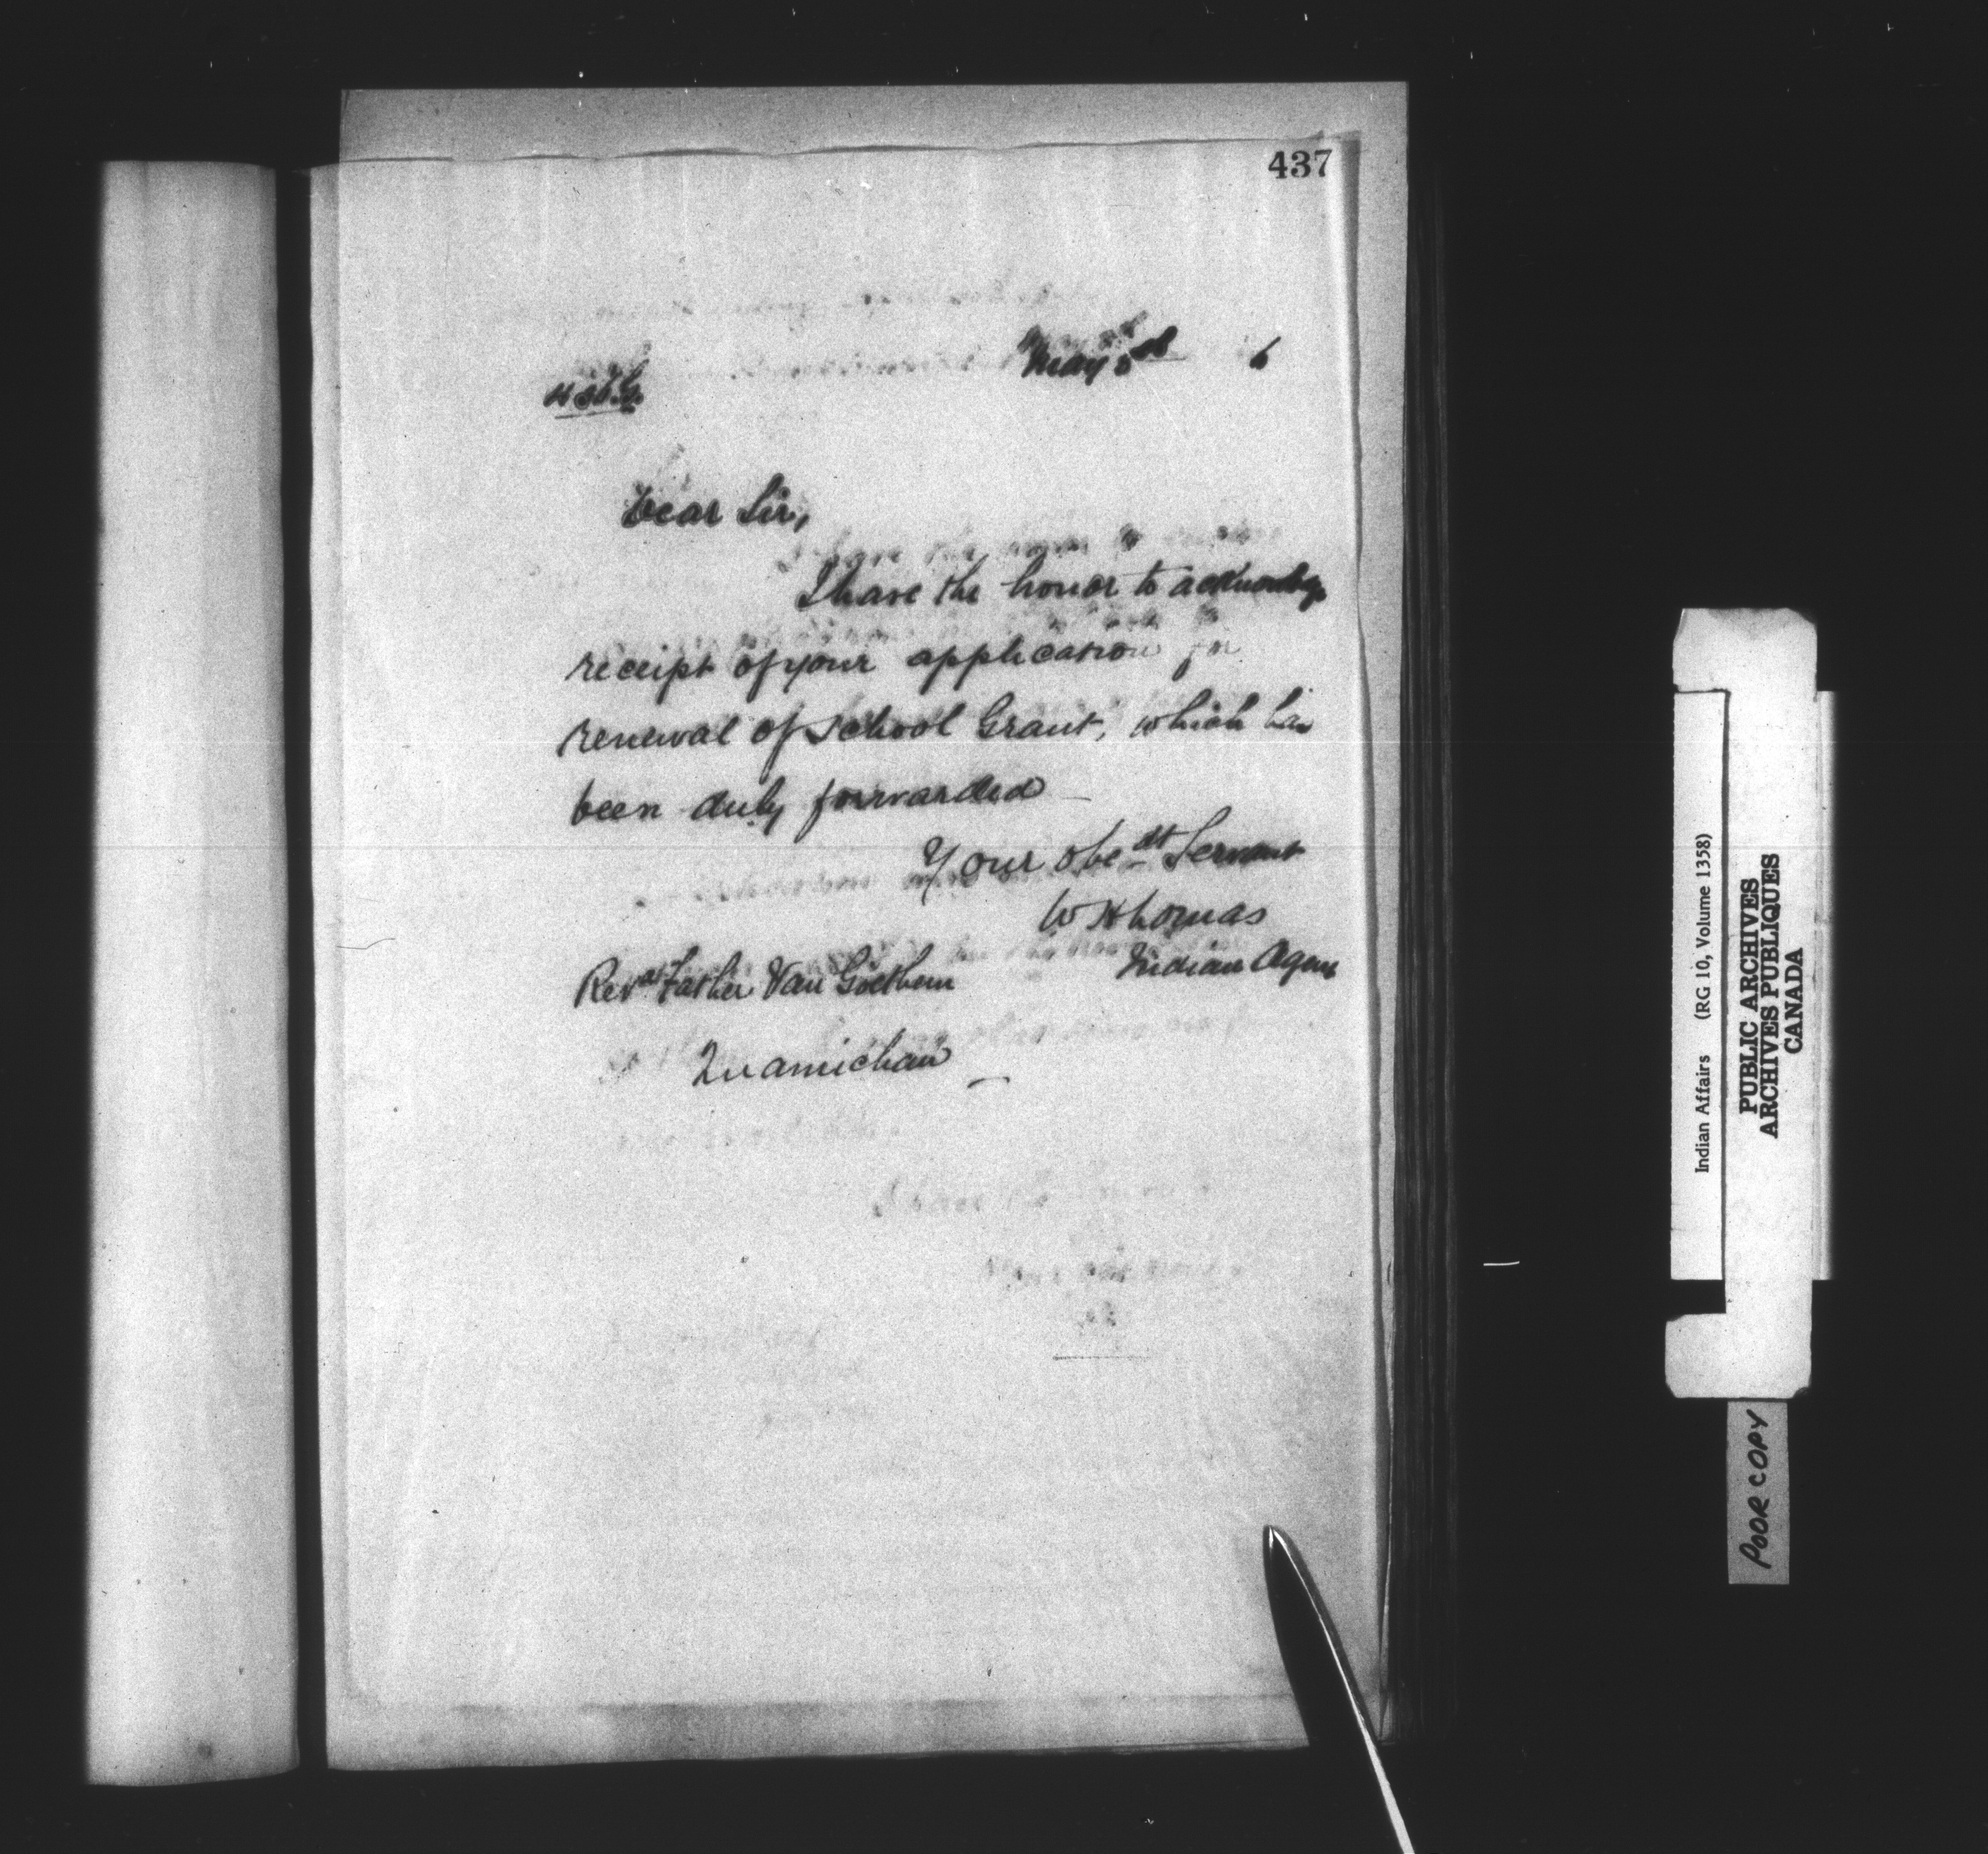 437
May 6
Dear Sir,
I have the honor to acknowledge
receipt of your application for
renewal of School Grant, which has
been duly forwarded
Your obedt Servant
W H Lomas
Indian Agent
Revd Father Van Goethem
Quamichan
Indian Affairs (RG 10, Volume 1358)
PUBLIC ARCHIVES
ARCHIVES PUBLIQUES
CANADA
POOR COPY